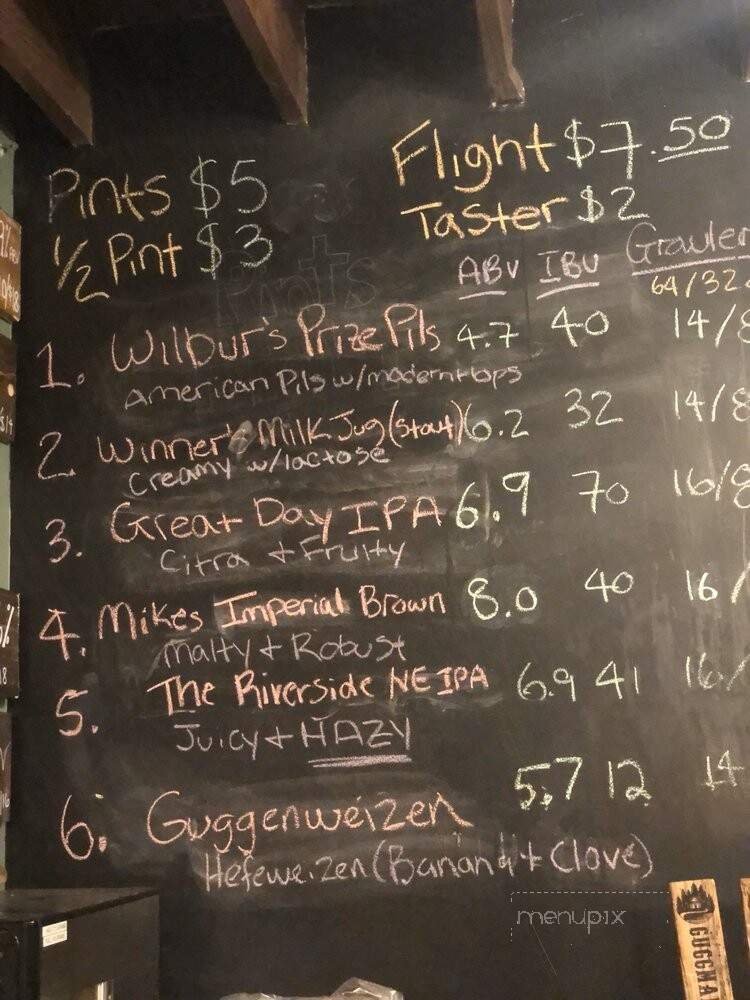 Pints $5
Flight $7.50
1/2 Pint $3
Taster $2
ABV IBU Growler
64/32
1. Wilbur's Prize Pils 4.7 40 14/8
American Pils w/modern Hops
2 Winner's Milk Jug (Stout) 6.2 32 14/8
Creamy w/lactose
3. Great Day IPA 6.9 70 16/8
Citra + Fruity
4. Mikes Imperial Brown 8.0 40 16/
Malty + Robust
5. The Riverside NE IPA 6.9 41 16/
Juicy + HAZY
6. Guggenweizen 5.7 12 14
Hefeweizen (Banana + Clove)
menupix
GUGGMA